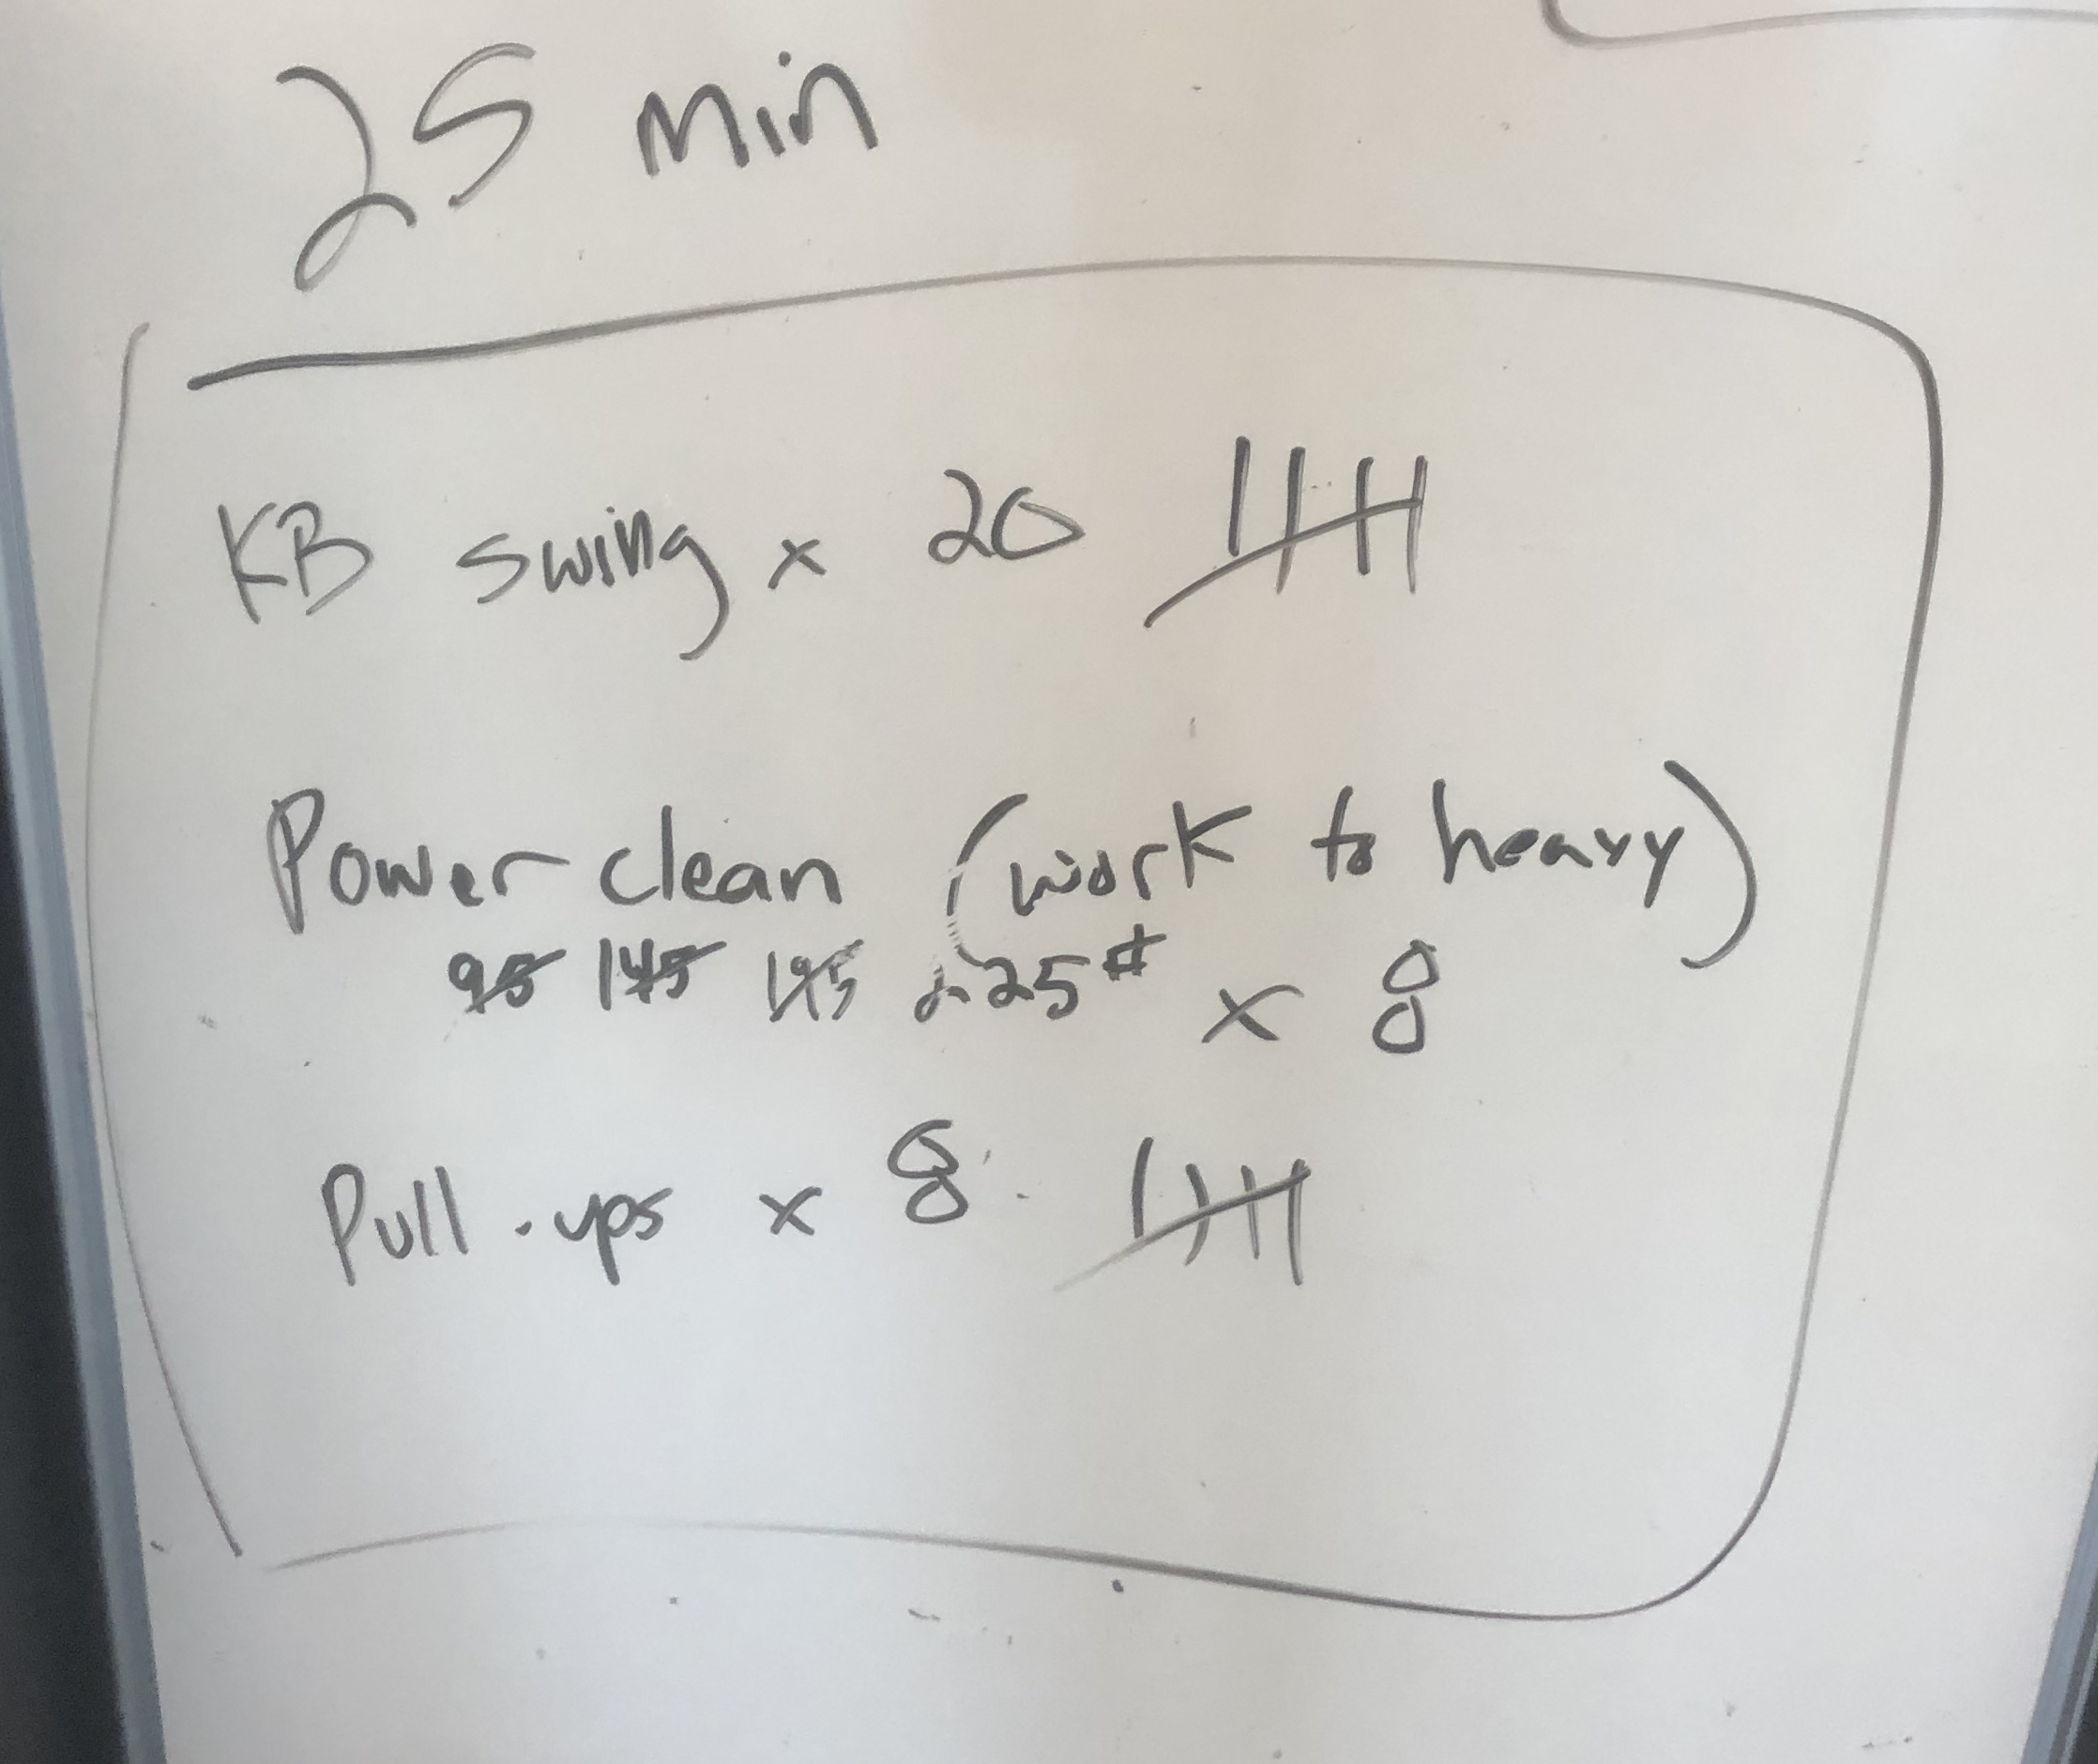 25 min
KB swing x 20
Power clean (work to heavy)
95 145 195 225# x 8
Pull-ups x 8